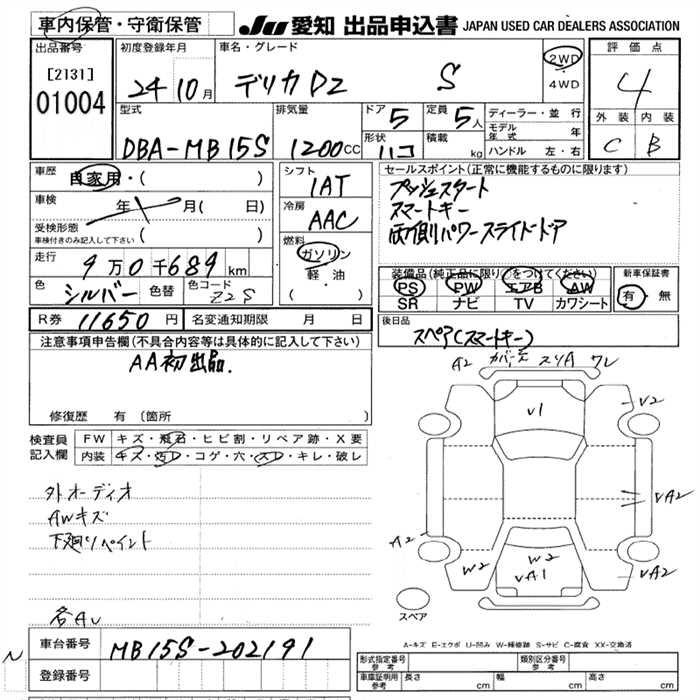 車内保管・守衛保管
JU 愛知 出品申込書 JAPAN USED CAR DEALERS ASSOCIATION
出品番号 初度登録年月 車名・グレード 2WD 評価点
[2131] 24 10月 デリカD2 S ・ 4
01004 4WD 外装 内装
型式 排気量 ドア 5 定員 5人 ディーラー・並行 C B
DBA-MB15S 1200CC 形状 ハコ 積載 kg モデル年式 年
ハンドル 左・右
車歴 自家用・( ) シフト セールスポイント (正常に機能するものに限ります)
1AT プッシュスタート
車検 年 月( 日) 冷房 スマートキー
受検形態 AAC 両側パワースライドドア
車検付きのみ記入して下さい ( )
走行 9万0千689km 燃料 ガソリン 装備品(純正品に限り○をつけてください) 新車保証書
軽油 PS PW エアB AW 有・無
色 シルバー 色替 色コード Z2S ( ) SR ナビ TV カワシート
R券 11650円 名変通知期限 月 日 後日品
スペア(スマートキー)
注意事項申告欄(不具合内容等は具体的に記入して下さい)
AA初出品.
修復歴 有 (箇所
検査員 FW キズ・飛石・ヒビ割・リペア跡・X要
記入欄 内装 キズ・汚レ・コゲ・穴・スレ・キレ・破レ
外オーディオ
AWキズ
下廻リペイント
各AU
A2 カバー左 スリA ワレ
V1
V2
VA2
A2
W2
W2
VA1
VA2
スペア
A-キズ E-エクボ U-凹み W-補修跡 S-サビ C-腐食 XX-交換済
N 車台番号 MB15S-202191
登録番号
形式指定番号 参考 類別区分番号 参考
車庫証明用 参考 長さ cm 幅 cm 高さ cm